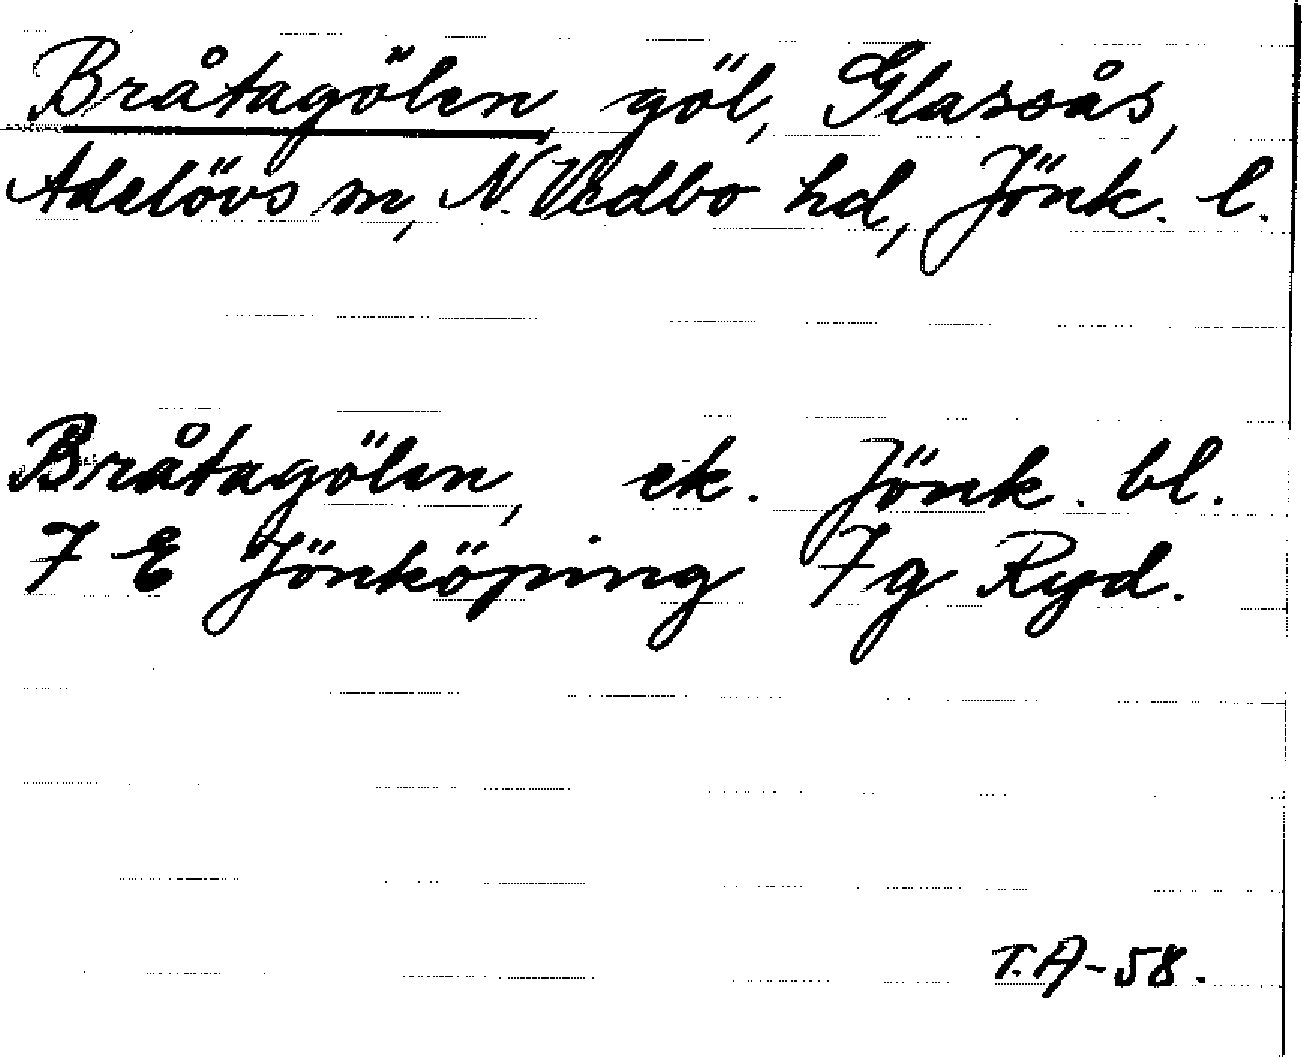 Bråtagölen göl, Glassås,
Adelövs sn, N. Vedbo hd, Jönk. l.
Bråtagölen, ek. Jönk. bl.
7 E Jönköping 7g Ryd.
T.A-58.